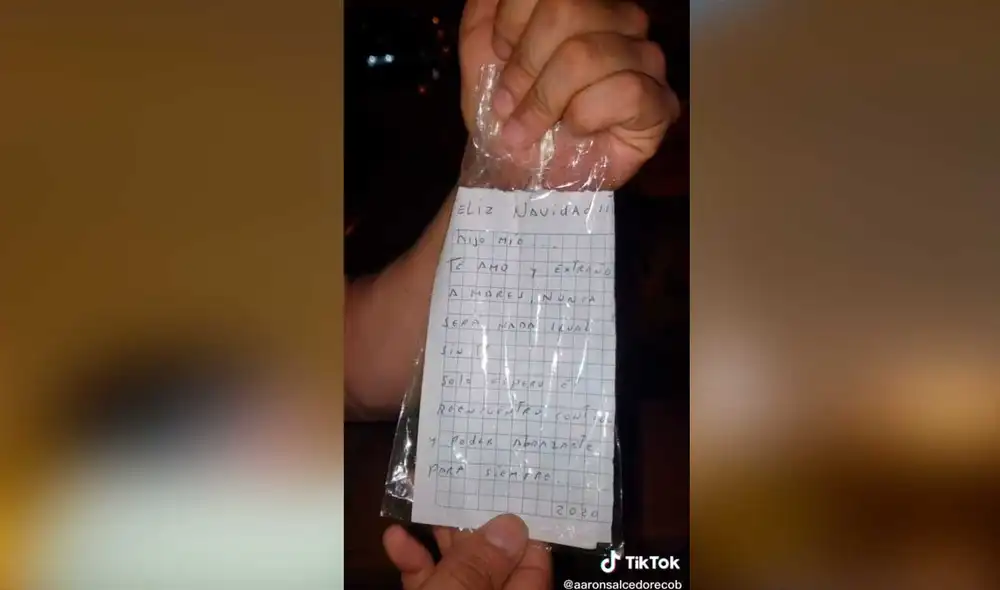 ELIZ NAVIDAD!!!
hijo mío ....
TE AMO y EXTRAÑO
A MARES, NUNCA
SERA NADA IGUAL
SIN TI
Solo ESPERO El
REENCUENTRO CONTIGO
y PodER ABRAZARTE
PARA SIEMPRE.
2020
TikTok
@aaronsalcedorecob